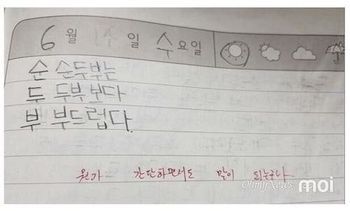 6월 14일 수요일
순 순두부는
두 두부보다
부 부드럽다.
뭔가 간단하면서도 말이 되는구나~
moi